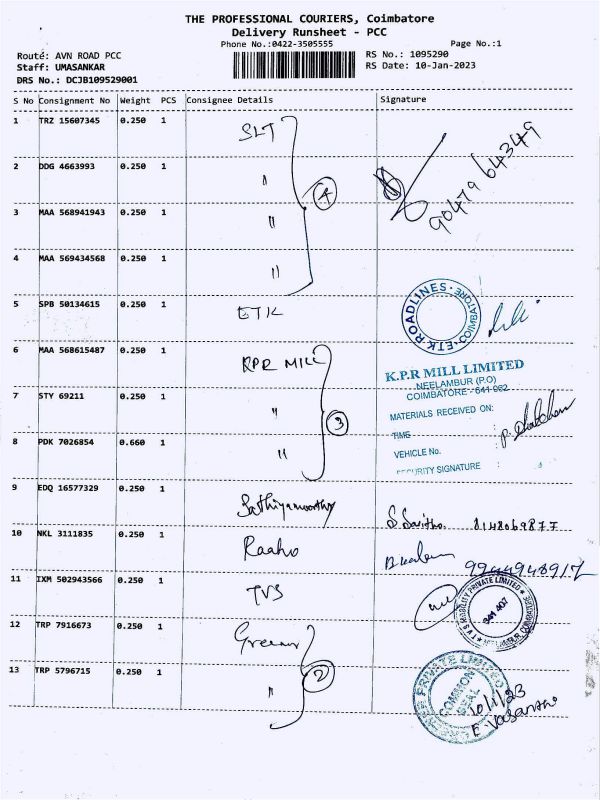 THE PROFESSIONAL COURIERS, Coimbatore
Delivery Runsheet - PCC
Phone No.:0422-3505555 Page No.:1
Route: AVN ROAD PCC RS No.: 1095290
Staff: UMASANKAR RS Date: 10-Jan-2023
DRS No.: DCJB109529001
S No Consignment No Weight PCS Consignee Details Signature
1 TRZ 15607345 0.250 1 SLT
2 DDG 4663993 0.250 1 "
4 9047964349
3 MAA 568941943 0.250 1 "
4 MAA 569434568 0.250 1 "
5 SPB 50134615 0.250 1 ETK ETK ROADLINES COIMBATORE
6 MAA 568615487 0.250 1 KPR MILL K.P.R MILL LIMITED
NEELAMBUR (P.O)
COIMBATORE - 641 062
7 STY 69211 0.250 1 " MATERIALS RECEIVED ON:
3 TIME :
8 PDK 7026854 0.660 1 " VEHICLE No. :
SECURITY SIGNATURE :
9 EDQ 16577329 0.250 1 Sathiyamoorthy 8148069877
10 NKL 3111835 0.250 1 Raaho 9944948917
11 IXM 502943566 0.250 1 TVS MOBILITY PRIVATE LIMITED
641 407
12 TRP 7916673 0.250 1
2 PRIVATE LIMITED
COMMON SEAL
13 TRP 5796715 0.250 1 " 10/1/23